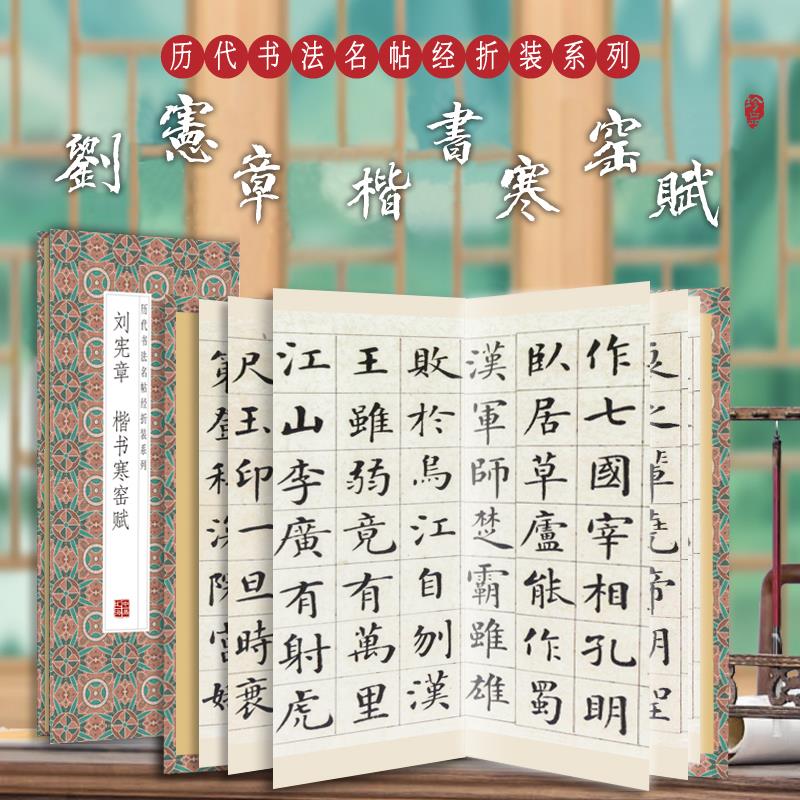 历代书法名帖经折装系列
劉憲章楷書寒窑賦
历代书法名帖经折装系列
刘宪章 楷书寒窑赋
作七國宰相孔明
臥居草廬能作蜀
漢軍師楚霸雖雄
敗於烏江自刎漢
王雖弱竟有萬里
江山李廣有射虎
尺玉印一旦時衰